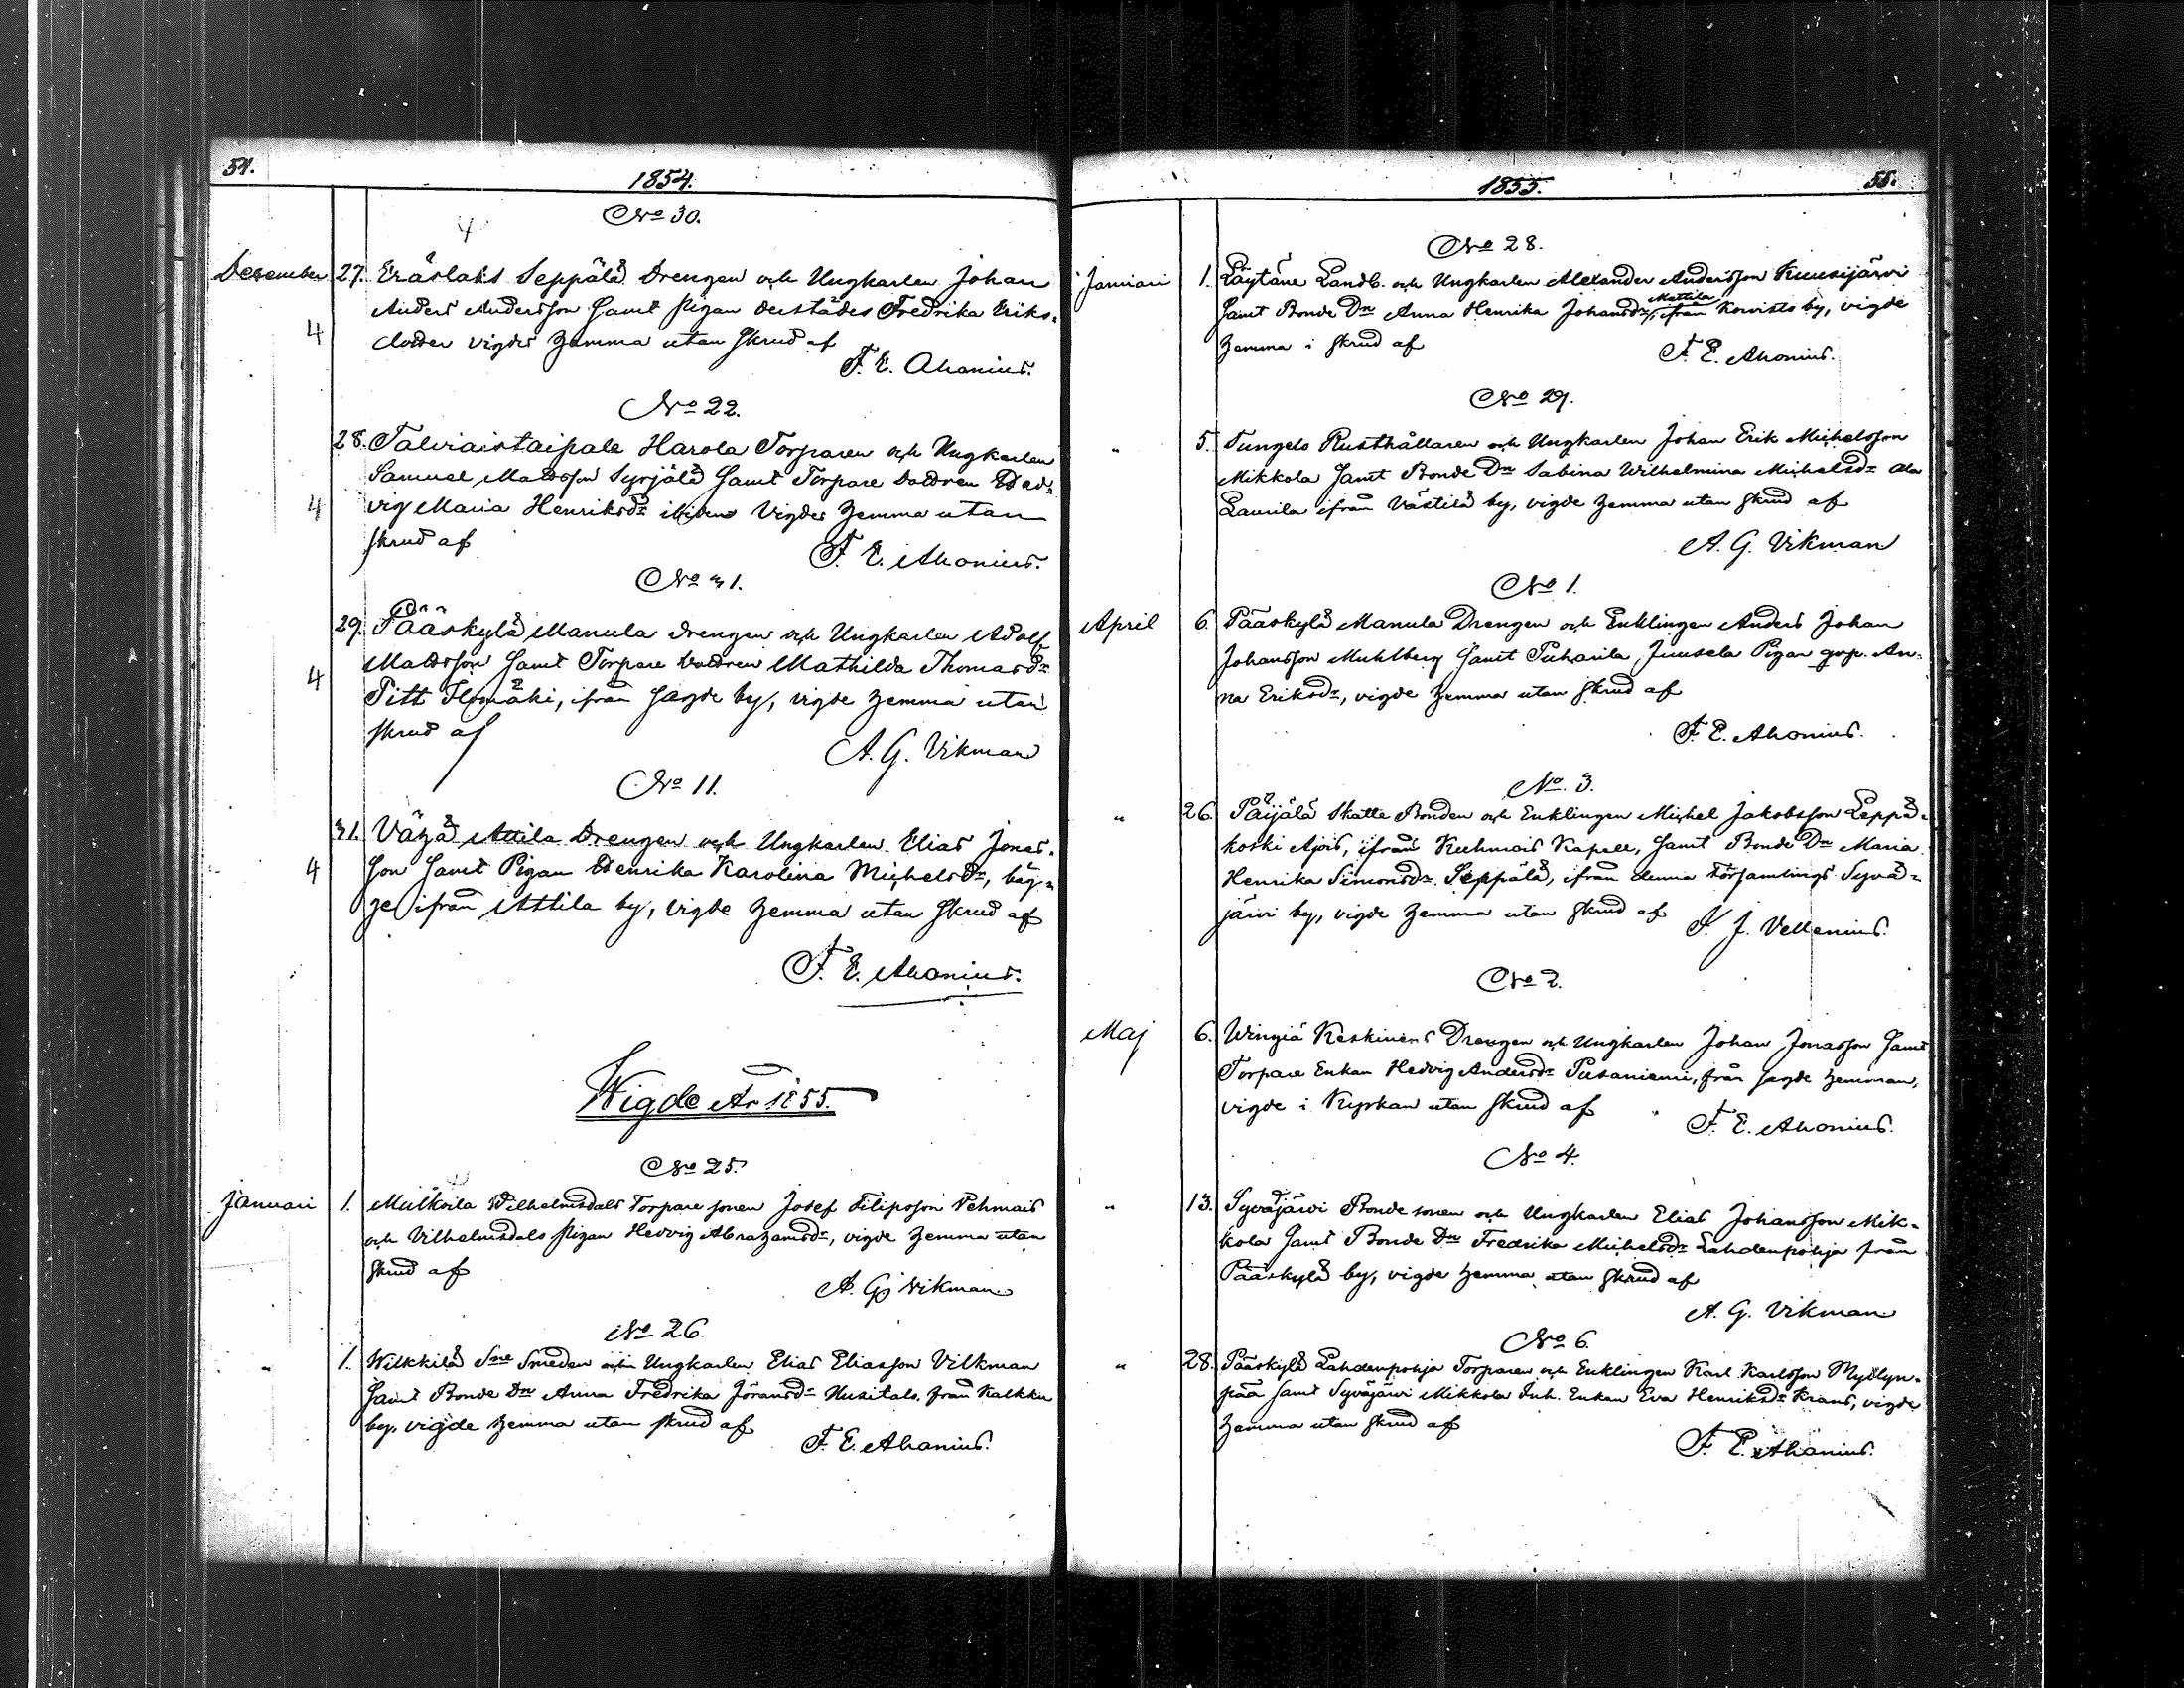 54.
1854.
No 30.
4
December 27. Eräslaks Seppälä Drengen och Ungkarlen Johan
Anders Andersson samt Pigan derstädes Fredrika Eriks-
4
dotter vigdes hemma utan skrud af
F. E. Ahonius.
No 22.
28. Talviaistaipale Harola Torparen och Ungkarlen
Samuel Mattsson Syrjälä samt Torpare dottren Hed-
4 vig Maria Henriksdr ibidem vigdes hemma utan
skrud af
F. E. Ahonius.
No 31.
29. Pääskylä Manula drengen och Ungkarlen Adolf
Mattsson samt Torpare dottren Mathilda Thomasdr
4
Pitt Ilomäki, ifrån sagde by, vigde hemma utan
skrud af
A. G. Vikman
No 11.
31. Vähä Attila Drengen och Ungkarlen Elias Jonas-
4 son samt Pigan Henrika Karolina Michelsdr, bäg-
ge ifrån Attila by, vigde hemma utan skrud af
F. E. Ahonius.
Wigde År 1855.
No 25.
Januari 1. Wilhelmsdals Torpare sonen Josef Filipsson Vehmais
och Vilhelmsdals pigan Hedvig Abrahamsdr, vigde hemma utan
skrud af
A. G. Vikman
No 26.
" 1. Wilkkilä Sme Smeden och Ungkarlen Elias Eliasson Vilkman
samt Bonde Dn Anna Fredrika Göransdr Uusitalo, från Kalkku
by, vigde hemma utan skrud af
F. E. Ahonius.
1855.
55.
No 28.
Januari 1. Läytäne Landb. och Ungkarlen Alexander Andersson Kuusijärvi
Mattila
samt Bonde Dn Anna Henrika Johansdr, ifrån Koivisto by, vigde
hemma i skrud af
F. E. Ahonius.
No 29.
" 5. Tungelo Rusthållaren och Ungkarlen Johan Erik Michelsson
Mikkola samt Bonde Dn Sabina Wilhelmina Michelsdr Ala
Laurila ifrån Västilä by, vigde hemma utan skrud af
A. G. Vikman
No 1.
April 6. Pääskylä Manula Drengen och Enklingen Anders Johan
Johansson Muhlberg samt Puharila, Juusela Pigan qvp. An-
na Eriksdr, vigde hemma utan skrud af
F. E. Ahonius.
No. 3.
" 26. Päijälä Skatte Bonden och Enklingen Michel Jakobsson Leppä-
koski Ajos, ifrån Kuhmois Kapell, samt Bonde Dn Maria
Henrika Simonsdr Seppälä, ifrån denna Församlings Syvä-
järvi by, vigde hemma utan skrud af
F. J. Vellenius.
No 2.
Maj 6. Wingiä Keskinens Drengen och Ungkarlen Johan Jonasson samt
Torpare Enkan Hedvig Andersdr Pusaniemi, från sagde hemman,
vigde i Kyrkan utan skrud af
F. E. Ahonius.
No 4.
" 13. Syväjärvi Bonde sonen och Ungkarlen Elias Johansson Mik-
kola samt Bonde Dn Fredrika Michelsdr Lahdenpohja från
Pääskylä by, vigde hemma utan skrud af
A. G. Vikman
No 6.
" 28. Pääskylä Lahdenpohja Torparen och Enklingen Karl Karlsson Myllyn-
pää samt Syväjärvi Mikkola Inh. Enkan Eva Henriksdr Krans, vigde
hemma utan skrud af
F. E. Ahonius.